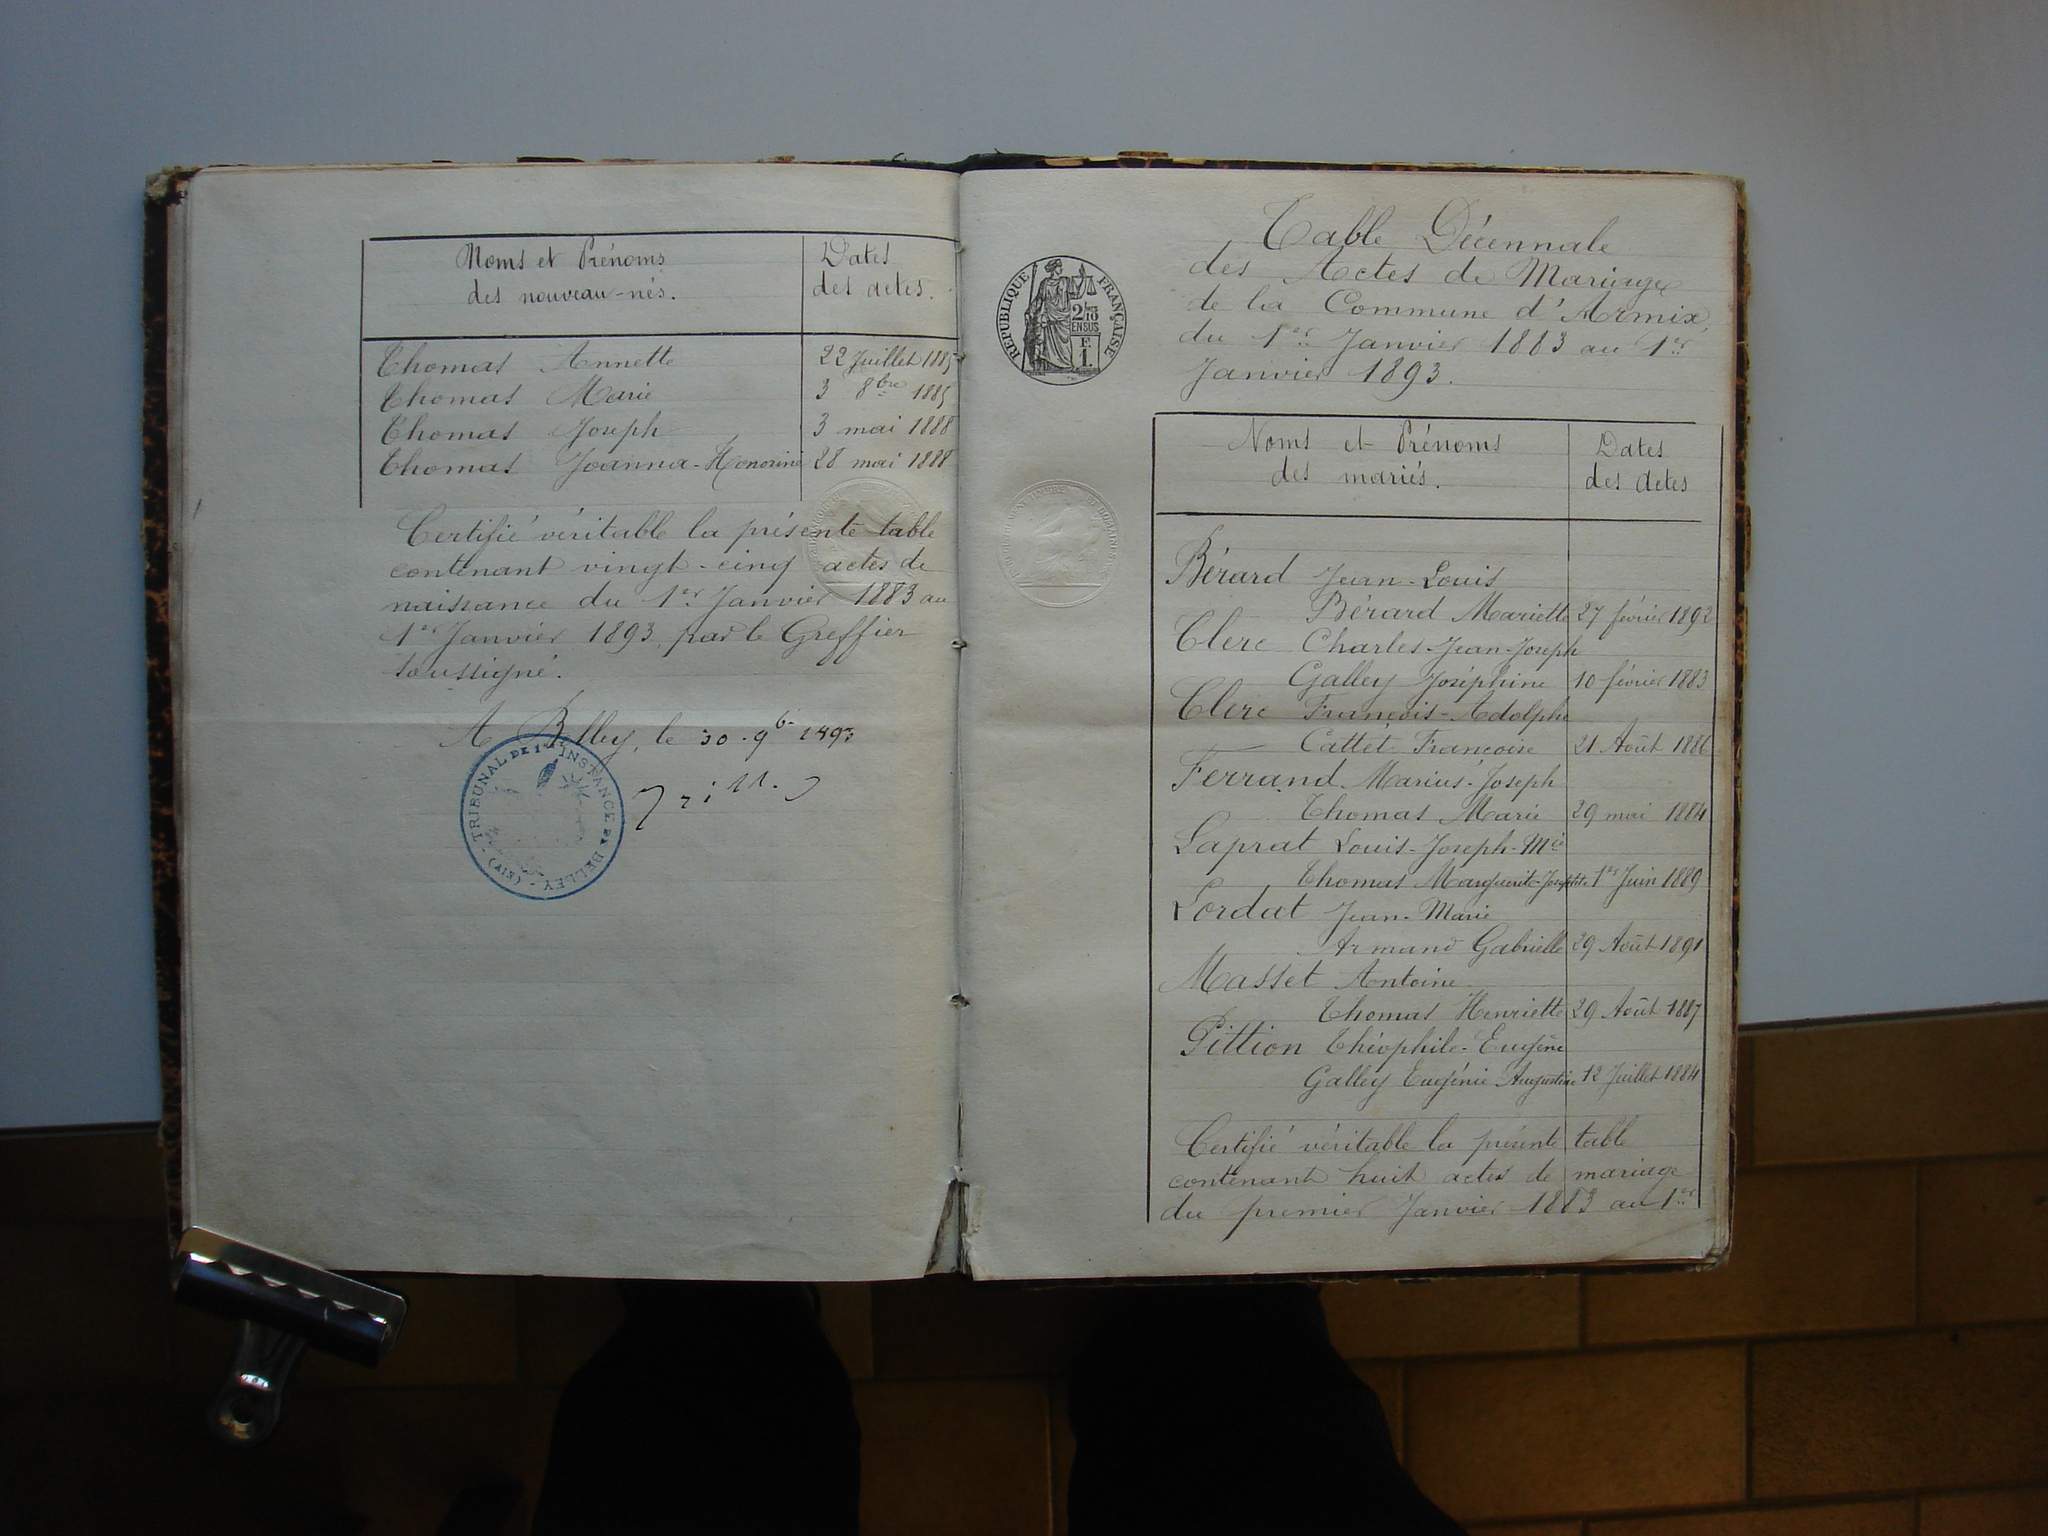 Noms et Prénoms
des nouveau-nés.
Dates
des actes.
Thomas Annette 22 Juillet 1885
Thomas Marie 3 8bre 1885
Thomas Joseph 3 mai 1888
Thomas Joanna-Honorine 28 mai 1888
Certifié véritable la présente table
contenant vingt-cinq actes de
naissance du 1er Janvier 1883 au
1er Janvier 1893, par le Greffier
soussigné.
A Belley, le 30 9b 1893
TRIBUNAL DE 1re INSTANCE DE BELLEY (AIN)
Table Décennale
des Actes de Mariage
de la Commune d'Armix,
du 1er Janvier 1883 au 1er
Janvier 1893.
RÉPUBLIQUE FRANÇAISE
2/10
EN SUS
F.
1.
Noms et Prénoms
des mariés.
Dates
des actes
Bérard Jean-Louis
Bérard Mariette 27 février 1892
Clerc Charles-Jean-Joseph
Galley Joséphine 10 février 1883
Clerc François-Adolphe
Cattet Françoise 21 Août 1886
Ferrand Marius-Joseph
Thomas Marie 29 mai 1884
Laprat Louis-Joseph-Mie
Thomas Marguerite-Josephte 1er Juin 1889
Lordat Jean-Marie
Armand Gabrielle 29 Août 1891
Masset Antoine
Thomas Henriette 29 Août 1887
Pittion Théophile-Eugène
Galley Eugénie Augustine 12 Juillet 1884
Certifié véritable la présente table
contenant huit actes de mariage
du premier Janvier 1883 au 1er